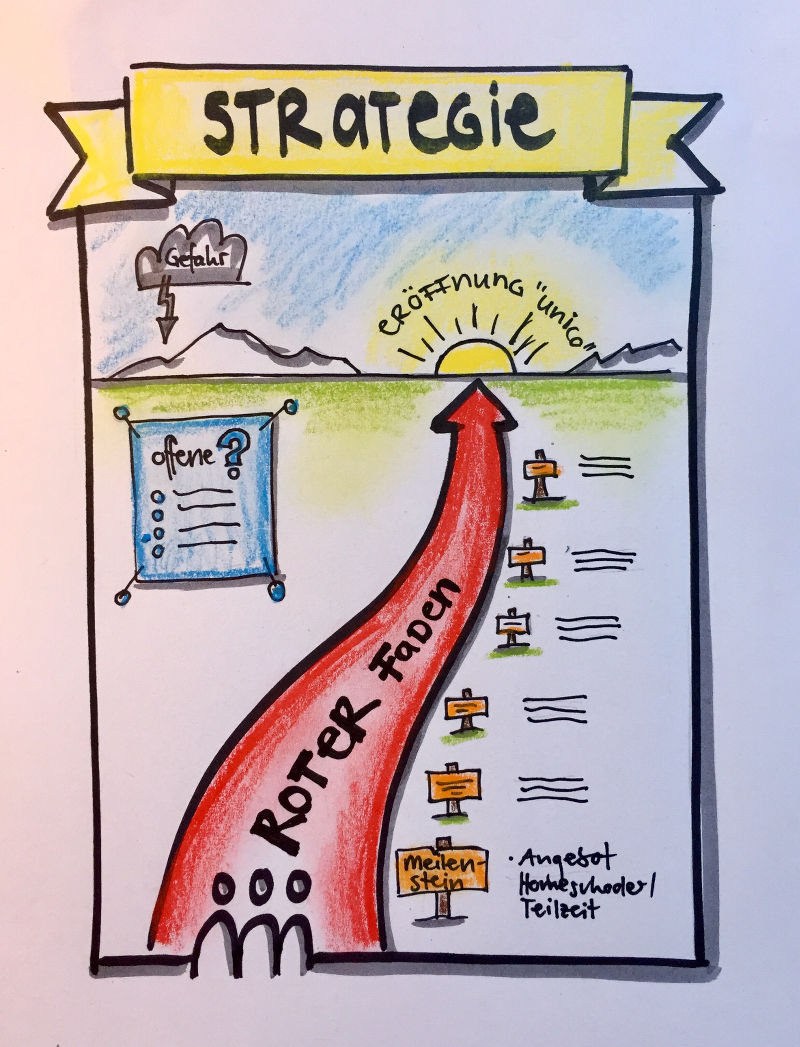 STRATEGIE
Gefahr
ERÖFFNUNG "UNICO"
offene ?
ROTER FADEN
Meilen-
stein
· Angebot
Homeschooler/
Teilzeit